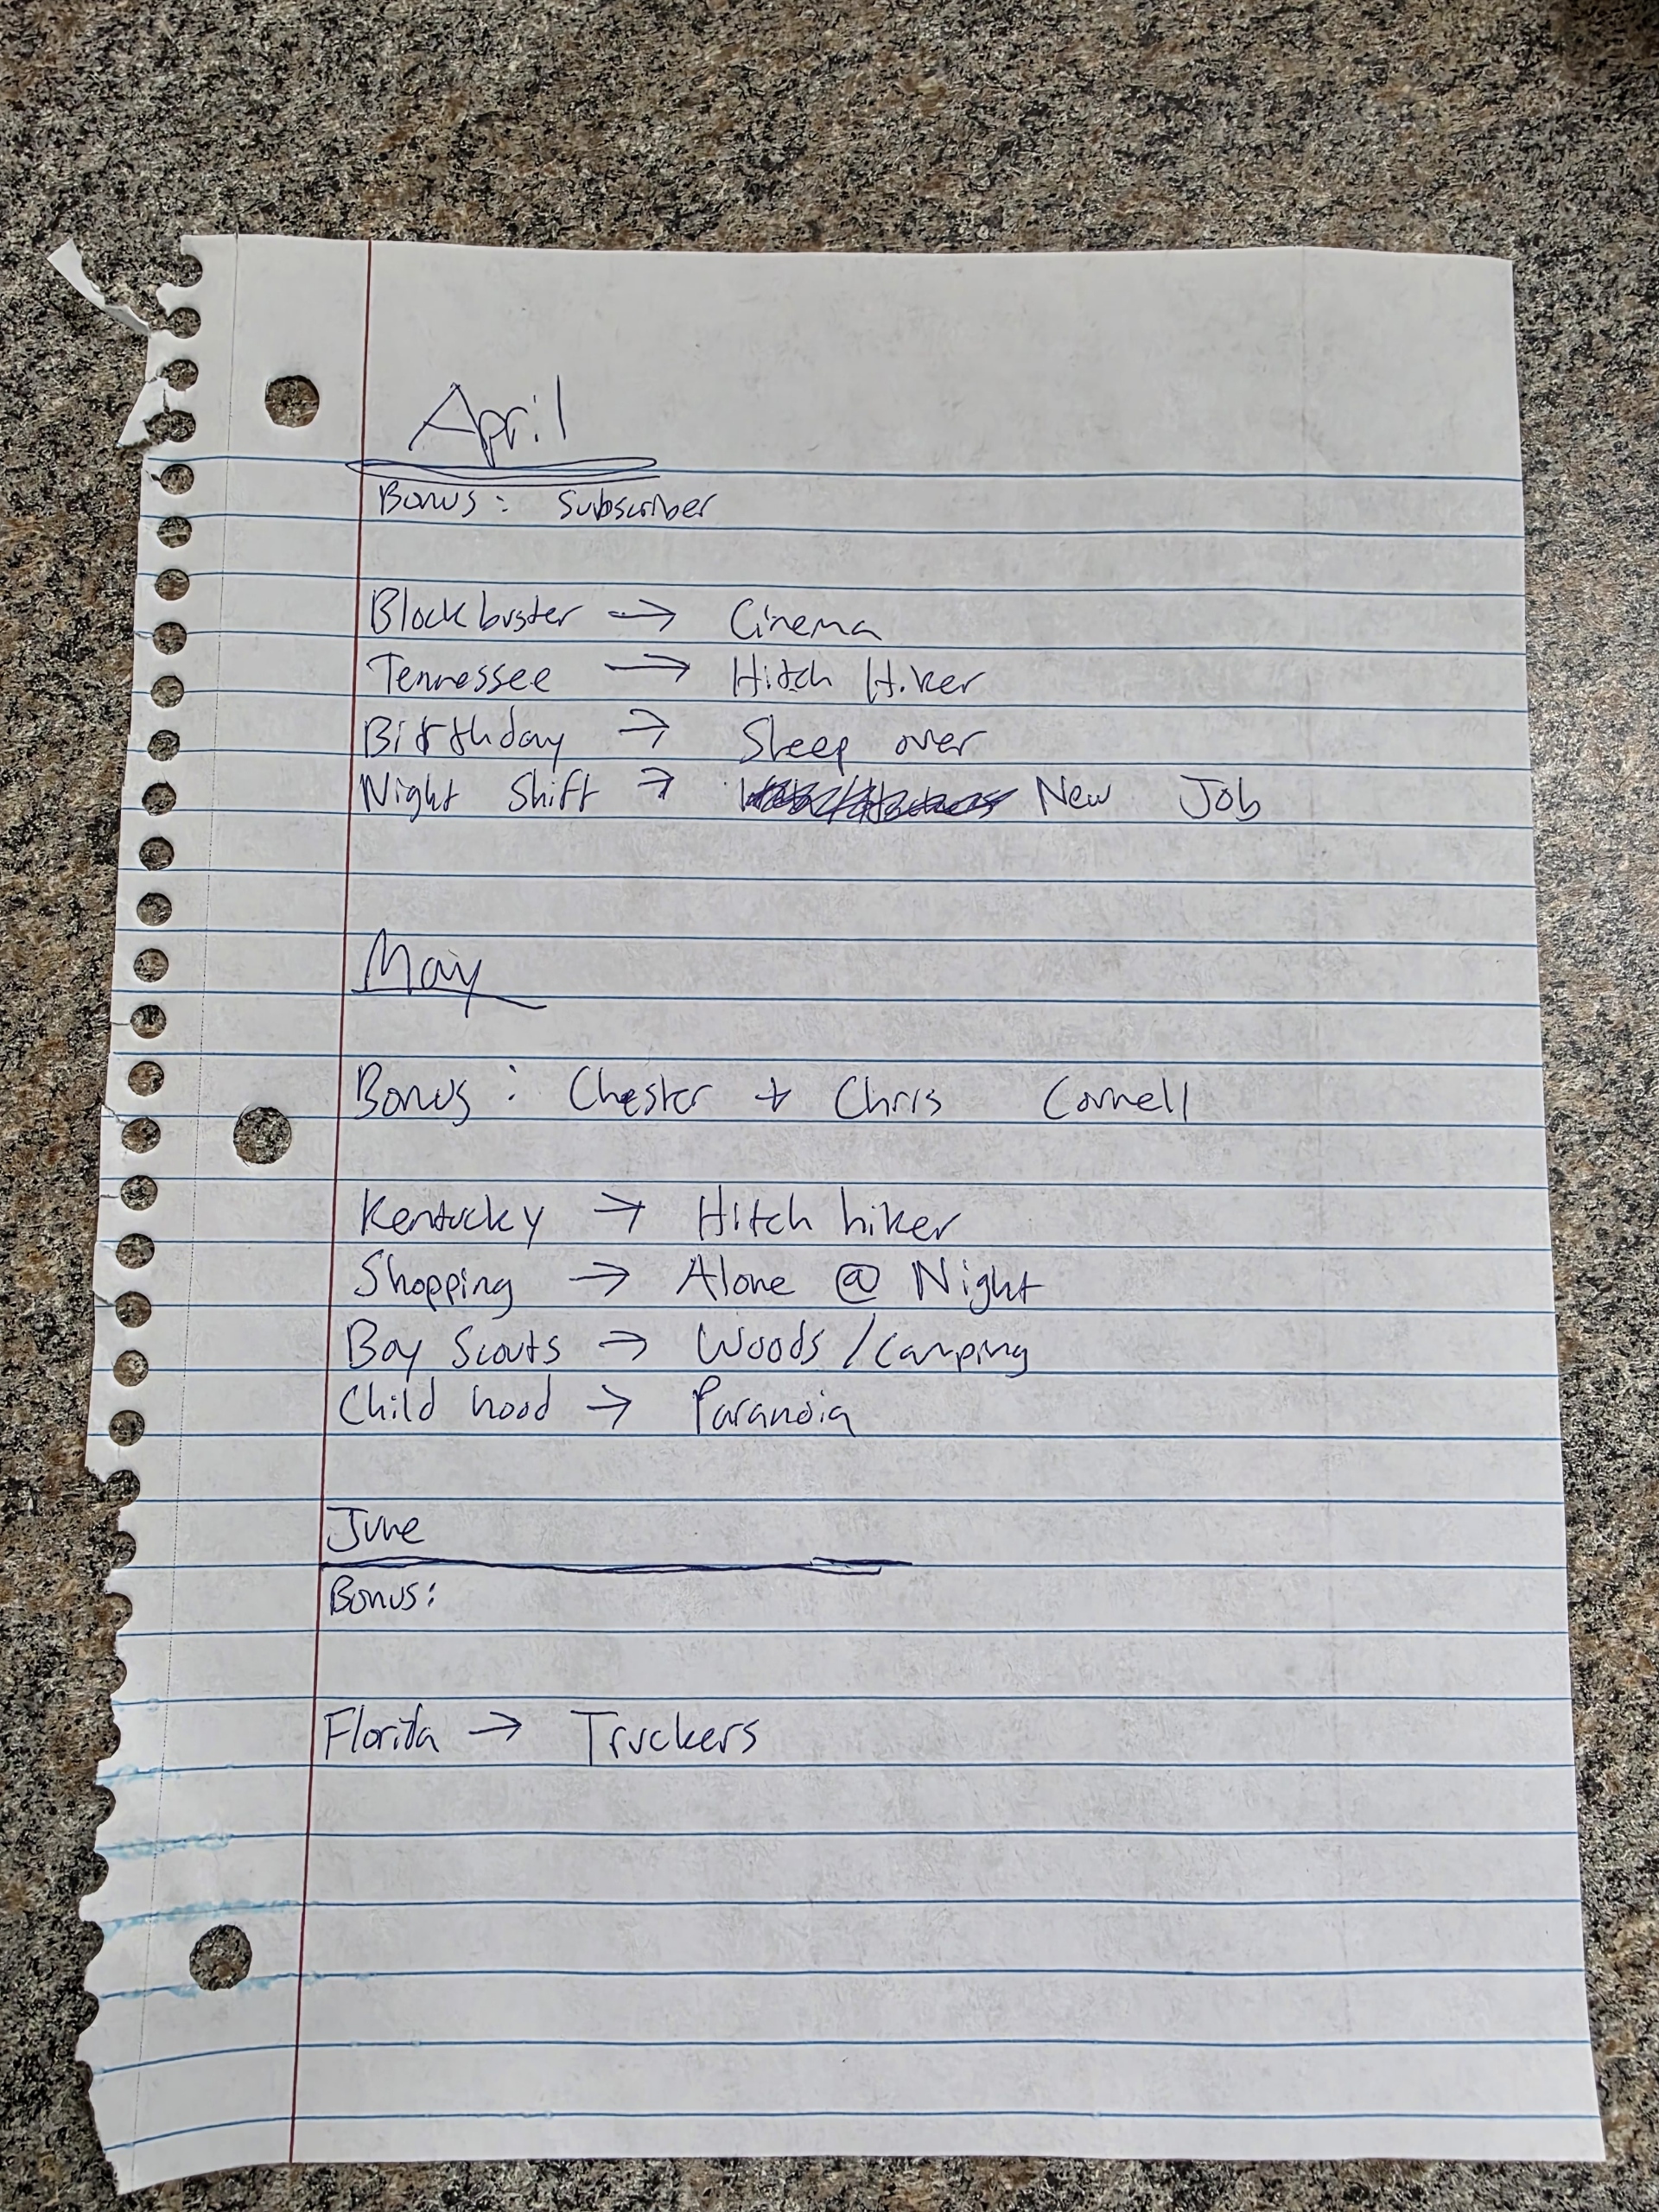 April
Bonus: Subscriber
Blockbuster → Cinema
Tennessee → Hitch Hiker
Birthday → Sleep over
Night Shift → New Job
May
Bonus: Chester + Chris Cornell
Kentucky → Hitch hiker
Shopping → Alone @ Night
Boy Scouts → Woods / Camping
Child hood → Paranoia
June
Bonus:
Florida → Truckers